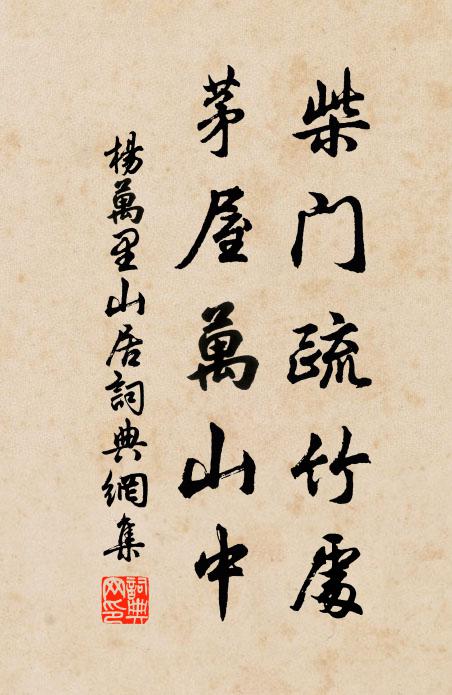 柴门疏竹處
茅屋萬山中
楊萬里山居詞典網集
詞典网印